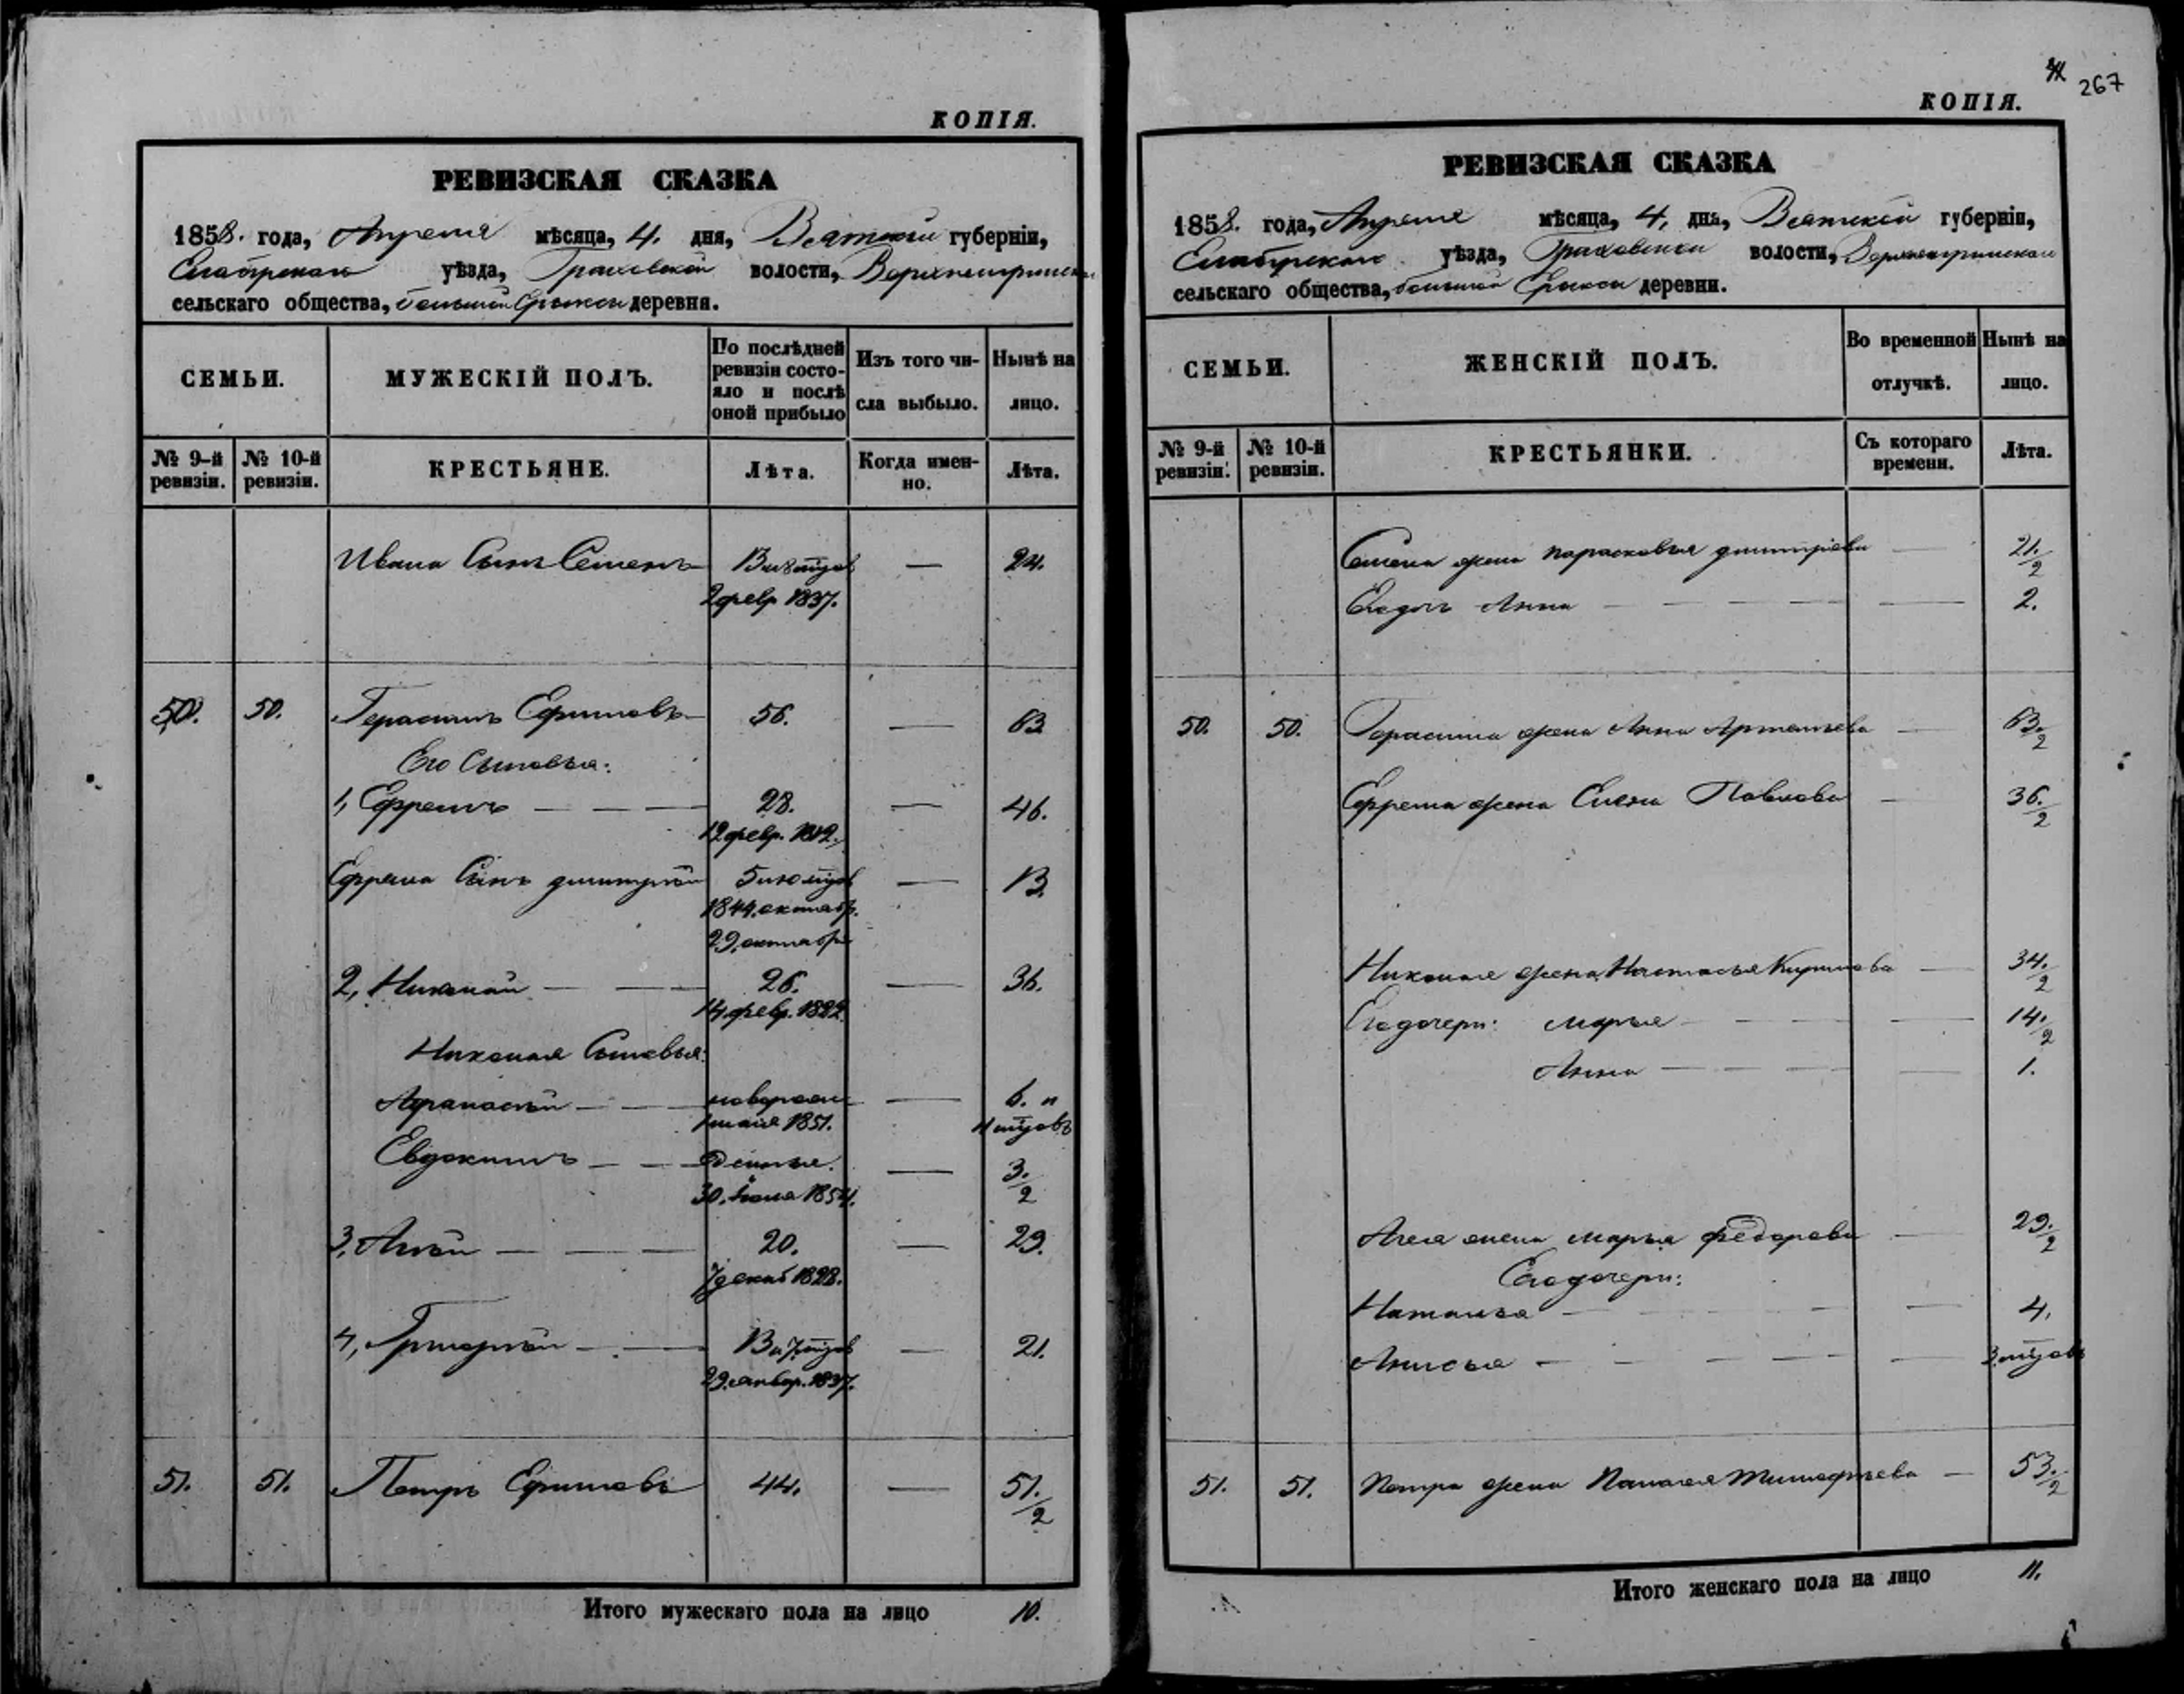 КОПІЯ.
РЕВИЗСКАЯ СКАЗКА
1858. года, Апреля мѣсяца, 4. дня, Вятской губерніи,
Елабужскаго уѣзда, Граховской волости,
сельскаго общества, большой Ерыксы деревня.
СЕМЬИ.
МУЖЕСКІЙ ПОЛЪ.
По послѣдней ревизіи состояло и послѣ оной прибыло
Изъ того числа выбыло.
Нынѣ на лицо.
№ 9-й ревизіи.
№ 10-й ревизіи.
КРЕСТЬЯНЕ.
Лѣта.
Когда именно.
Лѣта.
Ивана Сынъ Семенъ 13 и 8 мцов — 24.
2 февр 1837.
50. 50. Герасимъ Ефимовъ 56. — 63
Его Сыновья:
1, Ефремъ — — — 28. — 46.
12 февр. 1812.
Ефрема Сынъ димитрій 5 и 10 мцов — 13.
1844. октабр.
29, октабря
2, Николай — — 26. — 36.
14 февр. 1822.
Николая Сыновья:
Афанасій — — новорожн — 6. и
1 мая 1851. 11 мцовъ
Евдокимъ — — — 3./2
30. Іюня 1854.
3, Агѣй — — 20. — 29.
7 декаб 1828.
4, Григорій — — 13 и 7 мцов — 21.
29. январ. 1837.
51. 51. Петръ Ефимовъ 44. — 51./2
Итого мужескаго пола на лицо 10.
267
КОПІЯ.
РЕВИЗСКАЯ СКАЗКА
1858. года, Апреля мѣсяца, 4, дня, Вятской губерніи,
Елабужскаго уѣзда, Граховской волости,
сельскаго общества, большой Ерыксы деревни.
СЕМЬИ.
ЖЕНСКІЙ ПОЛЪ.
Во временной отлучкѣ.
Нынѣ на лицо.
№ 9-й ревизіи.
№ 10-й ревизіи.
КРЕСТЬЯНКИ.
Съ котораго времени.
Лѣта.
Семена жена парасковья димитріева — 21./2
Егодочь Анна — — — — — 2.
50. 50. Герасима жена Анна Артемьева — 63./2
Ефрема жена Елена Павлова — 36./2
Николая жена Настасья Кирилова — 34./2
Егодочери: марья — — — — 14./2
Анна — — — — 1.
Агея жена марья федорова — 29./2
Егодочери:
Наталья — — — — — 4.
Анисья — — — — — 3 мцовъ
51. 51. Петра жена Палагея Тимофѣева — 53./2
Итого женскаго пола на лицо 11.